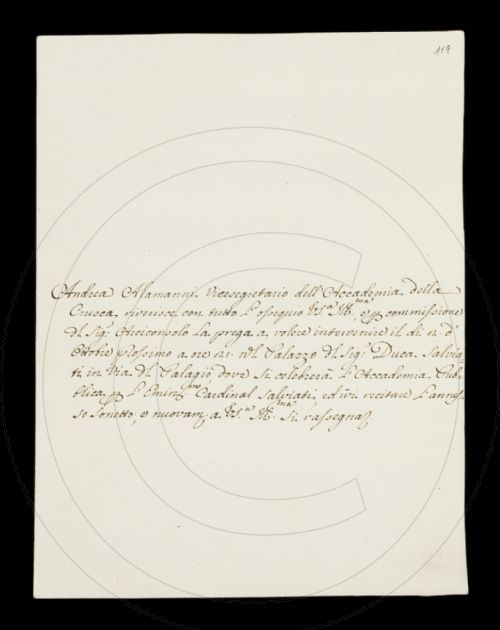 119
Andrea Alamanni Vicesegretario dell'Accademia della
Crusca riverisce con tutto l'ossequio Vs.a Ill.ma e per commissione
del Sig.r Arciconsolo la prega a voler intervenire il dì
prossimo a ore 21. nel Palazzo del Sig.r Duca Salvia-
ti in Via del Palagio dove si celebrerà l'Accademia Pub-
blica per l'Emin.mo Cardinal Salviati, ed ivi recitare l'annes-
so Sonetto, e nuovam. a Vs.a Ill.ma si rassegna